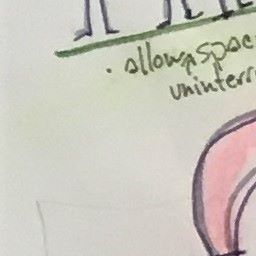 · allow spac
uninterr